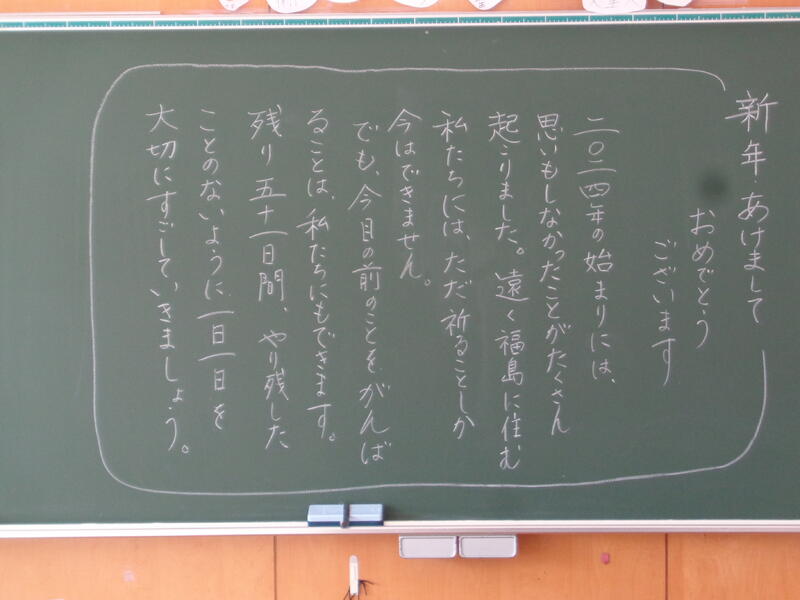 新年あけまして
おめでとう
ございます
二〇二四年の始まりには、
思いもしなかったことがたくさん
起こりました。遠く福島に住む
私たちには、ただ祈ることしか
今はできません。
でも、今目の前のことをがんば
ることは、私たちにもできます。
残り五十一日間、やり残した
ことのないように一日一日を
大切にすごしていきましょう。